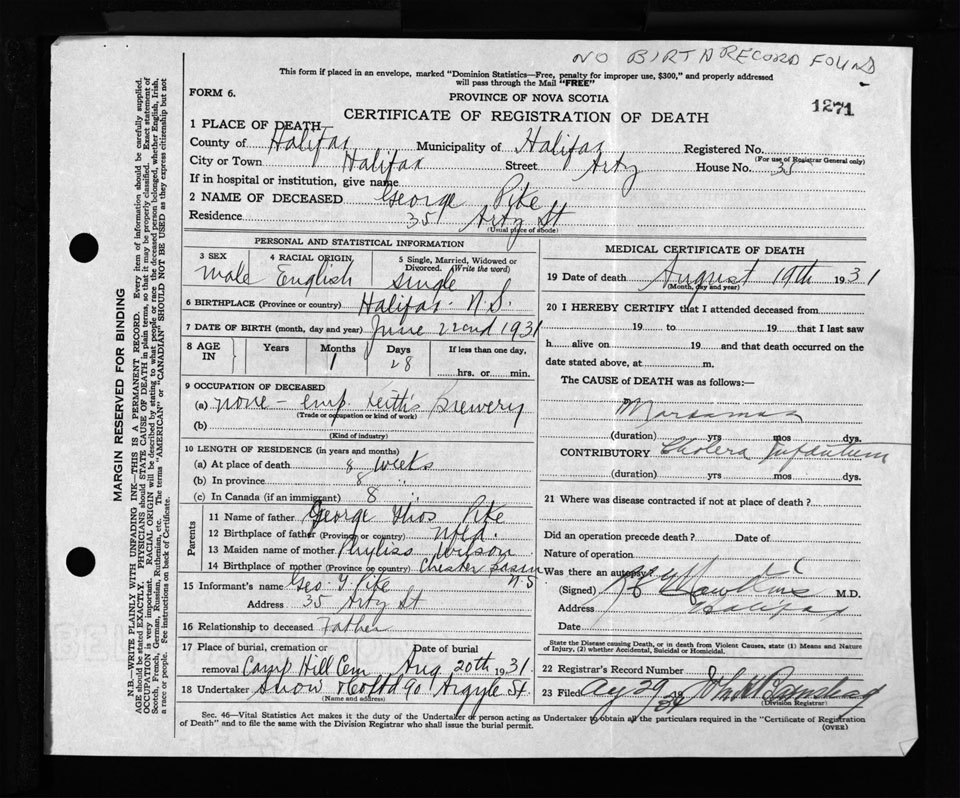 NO BIRTH RECORD FOUND
This form if placed in an envelope, marked "Dominion Statistics—Free, penalty for improper use, $300," and properly addressed
will pass through the Mail "FREE"
FORM 6.
PROVINCE OF NOVA SCOTIA
1271
CERTIFICATE OF REGISTRATION OF DEATH
1 PLACE OF DEATH—
County of Halifax Municipality of Halifax Registered No.
(For use of Registrar General only)
City or Town Halifax Street Arty House No. 35
If in hospital or institution, give name
2 NAME OF DECEASED George Pike
Residence 35 Arty St
(Usual place of abode)
PERSONAL AND STATISTICAL INFORMATION
3 SEX 4 RACIAL ORIGIN 5 Single, Married, Widowed or
Divorced. (Write the word)
male English single
6 BIRTHPLACE (Province or country) Halifax - N.S.
7 DATE OF BIRTH (month, day and year) June 22nd 1931
8 AGE IN Years Months Days If less than one day,
1 28 hrs. or min.
9 OCCUPATION OF DECEASED
(a) none - emp. Keith's Brewery
(Trade or occupation or kind of work)
(b)
(Kind of industry)
10 LENGTH OF RESIDENCE (in years and months)
(a) At place of death 8 weeks
(b) In province 8 "
(c) In Canada (if an immigrant) 8 "
Parents
11 Name of father George Thos Pike
12 Birthplace of father (Province or country) Nfld.
13 Maiden name of mother Phyliss Wilson
14 Birthplace of mother (Province or country) Chester Basin N.S.
15 Informant's name Geo. T. Pike
Address 35 Arty St
16 Relationship to deceased Father
17 Place of burial, cremation or removal Date of burial
Camp Hill Cem Aug 20th 1931
18 Undertaker Snow & Co Ltd 90 Argyle St.
(Name and address)
MEDICAL CERTIFICATE OF DEATH
19 Date of death August 19th 1931
(Month, day and year)
20 I HEREBY CERTIFY that I attended deceased from
19 to 19 that I last saw
h alive on 19 and that death occurred on the
date stated above, at m.
The CAUSE OF DEATH was as follows:—
Marasmas
(duration) yrs mos dys.
CONTRIBUTORY Cholera Infantum
(duration) yrs mos dys.
21 Where was disease contracted if not at place of death?
Did an operation precede death? Date of
Nature of operation
Was there an autopsy?
(Signed) Hawkins M.D.
Address Halifax
Date
State the Disease causing Death, or is death from Violent Causes, state (1) Means and Nature
of Injury, (2) whether Accidental, Suicidal or Homicidal.
22 Registrar's Record Number
23 Filed
(Division Registrar)
Sec. 46—Vital Statistics Act makes it the duty of the Undertaker or person acting as Undertaker to obtain all the particulars required in the "Certificate of Registration
of Death" and to file the same with the Division Registrar who shall issue the burial permit.
(OVER)
MARGIN RESERVED FOR BINDING
N.B.—WRITE PLAINLY WITH UNFADING INK—THIS IS A PERMANENT RECORD. Every item of information should be carefully supplied.
AGE should be stated EXACTLY. PHYSICIANS should STATE CAUSE OF DEATH in plain terms, so that it may be properly classified. Exact statement of
OCCUPATION is very important. RACIAL ORIGIN will be described by stating to what people or race the deceased person belonged, whether English, Irish,
Scotch, French, German, Russian, Rothenian, etc. The terms "AMERICAN" or "CANADIAN" SHOULD NOT BE USED as they express citizenship but not
a race or people. See instructions on back of Certificate.